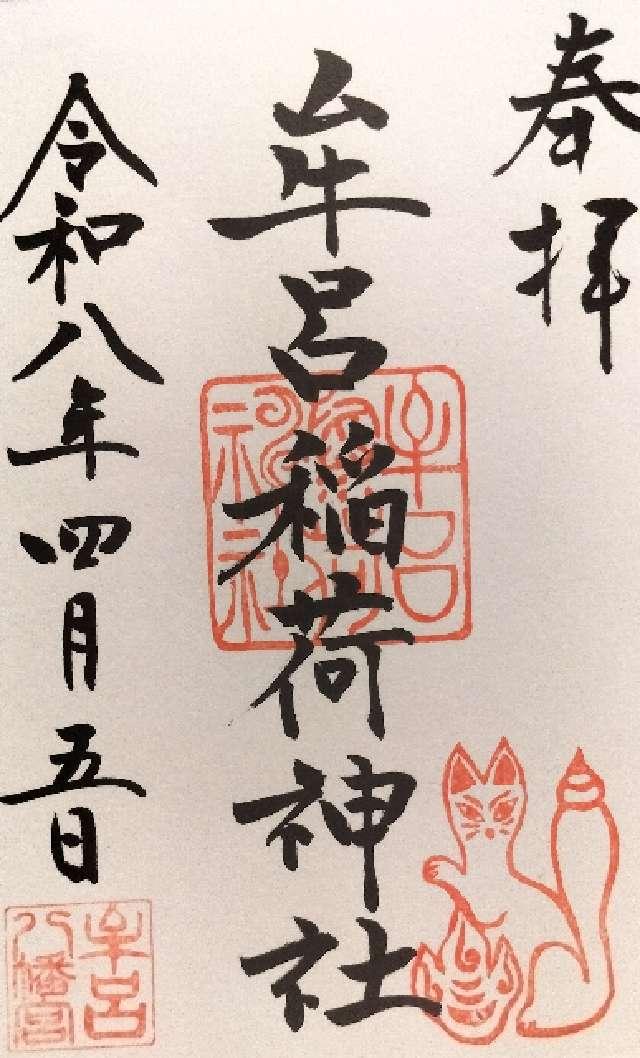 奉拝
牟呂稲荷神社
令和八年四月五日
牟呂
稲荷
神社
牟呂
八幡宮